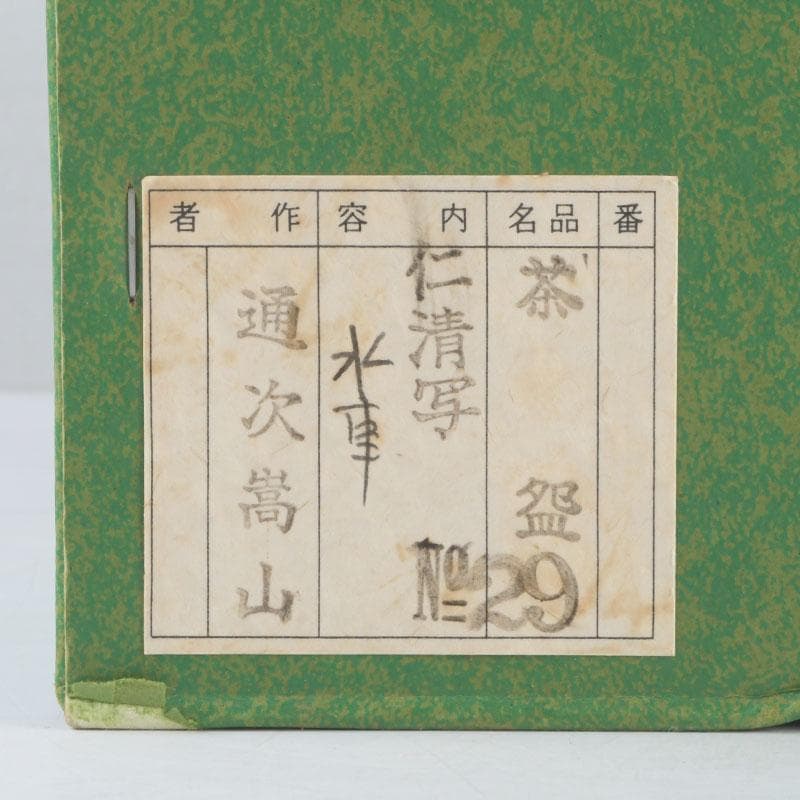 番
品名
茶盌
内容
仁清写
水車
№29
作者
通次嵩山